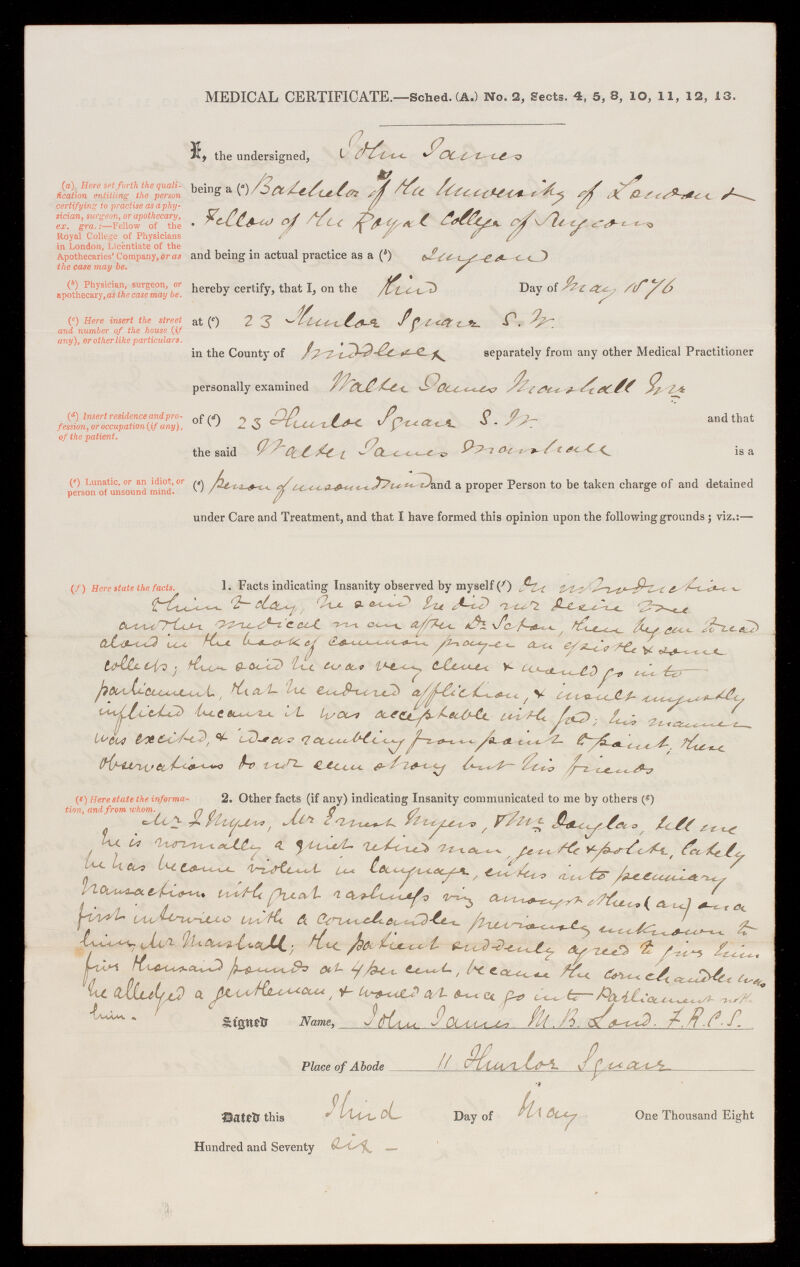 MEDICAL CERTIFICATE.—Sched. (A.) No. 2, Sects. 4, 5, 8, 10, 11, 12, 13.
I, the undersigned, John James
(a) Here set forth the quali-
fication entitling the person
certifying to practise as a phy-
sician, surgeon, or apothecary,
ex. gra.:—Fellow of the
Royal College of Physicians
in London, Licentiate of the
Apothecaries' Company, or as
the case may be.
being a (a) Batchelor of the University of London &
Fellow of the Royal College of Surgeons
and being in actual practice as a (b) Surgeon
(b) Physician, surgeon, or
apothecary, as the case may be.
hereby certify, that I, on the third Day of May 1876
(c) Here insert the street
and number of the house (if
any), or other like particulars.
at (c) 23 Thurloe Square S.W.
in the County of Middlesex separately from any other Medical Practitioner
personally examined Walter James Marshall Esqre
(d) Insert residence and pro-
fession, or occupation (if any),
of the patient.
of (d) 23 Thurloe Square S.W. and that
the said Walter James Marshall is a
(e) Lunatic, or an idiot, or
person of unsound mind.
(e) person of unsound mind and a proper Person to be taken charge of and detained
under Care and Treatment, and that I have formed this opinion upon the following grounds; viz.:—
(f) Here state the facts.
1. Facts indicating Insanity observed by myself (f) On introduction
to him to day, he said he did not desire to see
another medical man after Dr Seton, then began to read
aloud in the book of common prayer an epistle & some
collects; then said he was very clever & would go into
parliament, that he endured affliction, & insult unjustly
inflicted because it was acceptable with God; his manner
was excited, & ideas rambling from point to point, these
observations do not seem strong but his friends
(g) Here state the informa-
tion, and from whom.
2. Other facts (if any) indicating Insanity communicated to me by others (g)
Mr J Myers, Mr Ernest Myers, & Mr Douglas, tell me
he is normally a quiet retired man gentle & polite, lately
he has become violent in language, enters into pecuniary
transactions with great rashness viz amongst others on a
first interview with a cornchandler previously unknown to
him, Mr Marshall; the patient suddenly agreed to give him
five thousand pounds at 4 per cent, because the cornchandler was
he alledged a gentleman, & would at once go into Parliament with
him.
Signed Name, John James M.B. Lond. F.R.C.S.
Place of Abode 11 Thurloe Square
Dated this Third Day of May One Thousand Eight
Hundred and Seventy six —